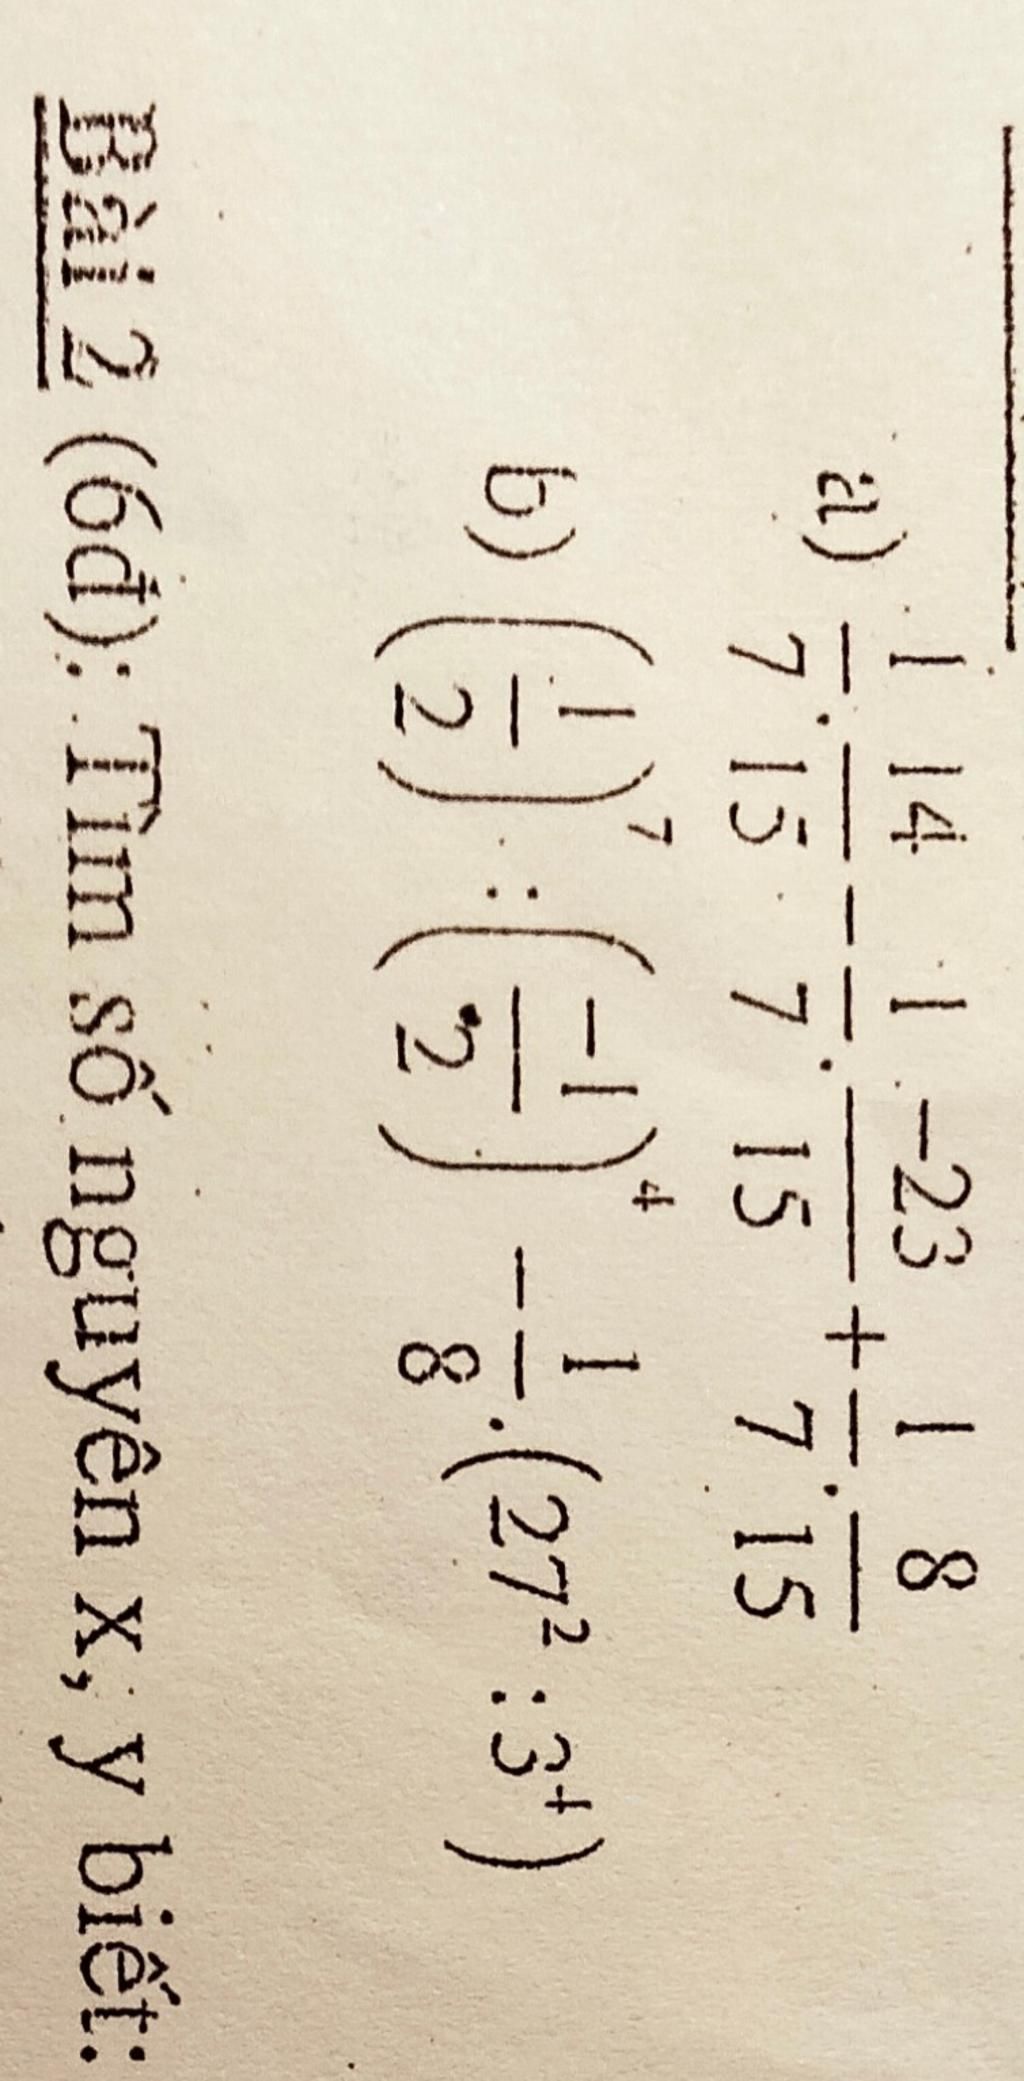 a) 1/7 . 14/15 - 1/7 . -23/15 + 1/7 . 8/15
b) (1/2)⁷ : (-1/2)⁴ - 1/8 . (27² : 3⁴)
Bài 2 (6đ): Tìm số nguyên x, y biết: